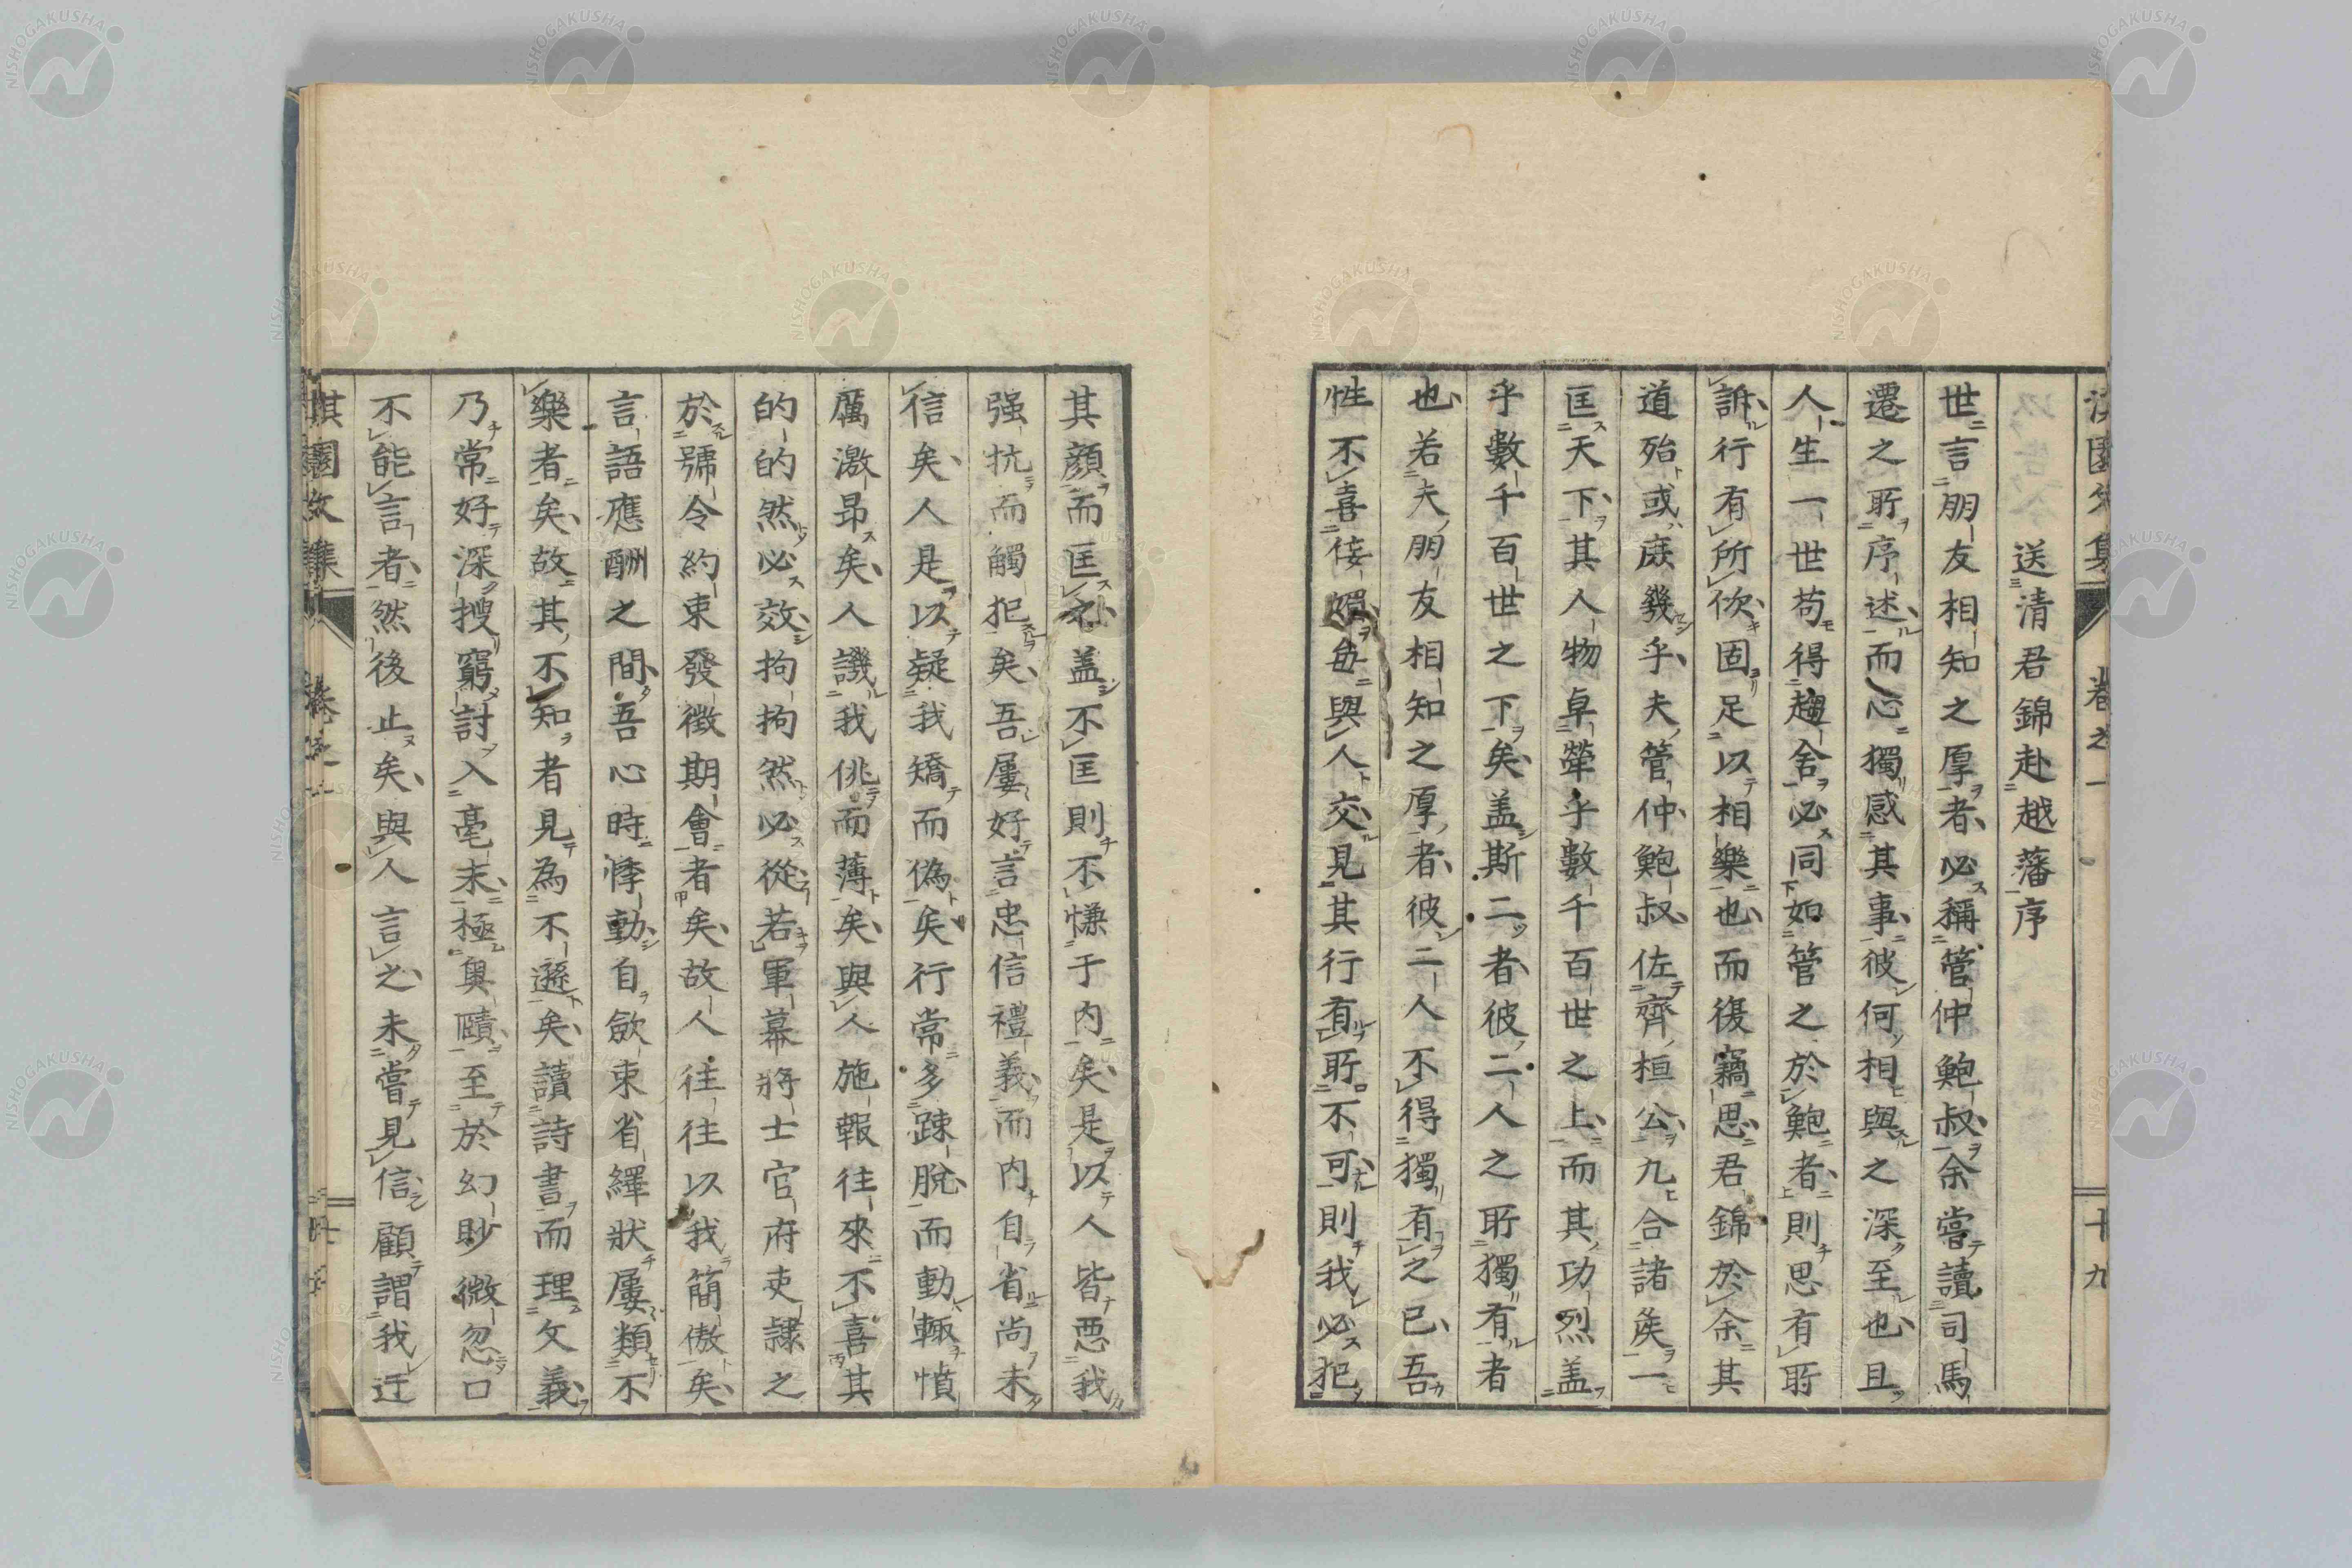 送清君錦赴越藩序
世言朋友相知之厚者必稱管仲鮑叔余嘗讀司馬
遷之所序述而心獨感其事彼何相與之深至也且
人生一世苟得趨舍必同如管之於鮑者則思有所
訴行有所依固足以相樂也而復竊思君錦於余其
道殆或庶幾乎夫管仲鮑叔佐齊桓公九合諸侯一
匡天下其人物卓犖乎數千百世之上而其功烈盖
乎數千百世之下矣盖斯二者彼二人之所獨有者
也若夫朋友相知之厚者彼二人不得獨有之已吾
性不喜倿媚每與人交見其行有所不可則我必犯
其顔而匡之盖不匡則不慊于内矣是以人皆惡我
强抗而觸犯矣吾屢好言忠信禮義而内自省尚未
信矣人是以疑我矯而偽矣行常多踈脱而動輙憤
厲激昂矣人譏我佻而薄矣與人施報往來不喜其
的的然必效拘拘然必從若軍幕將士官府吏隷之
於號令約束發徵期會者矣故人往往以我簡傲矣
言語應酬之間吾心時悸動自歛束省繹狀屢類不
樂者矣故其不知者見為不遜矣讀詩書而理文義
乃常好深搜窮討入毫末極奥賾至於幻眇微忽口
不能言者然後止矣與人言之未嘗見信顧謂我迂
淇園文集 卷之一 十九